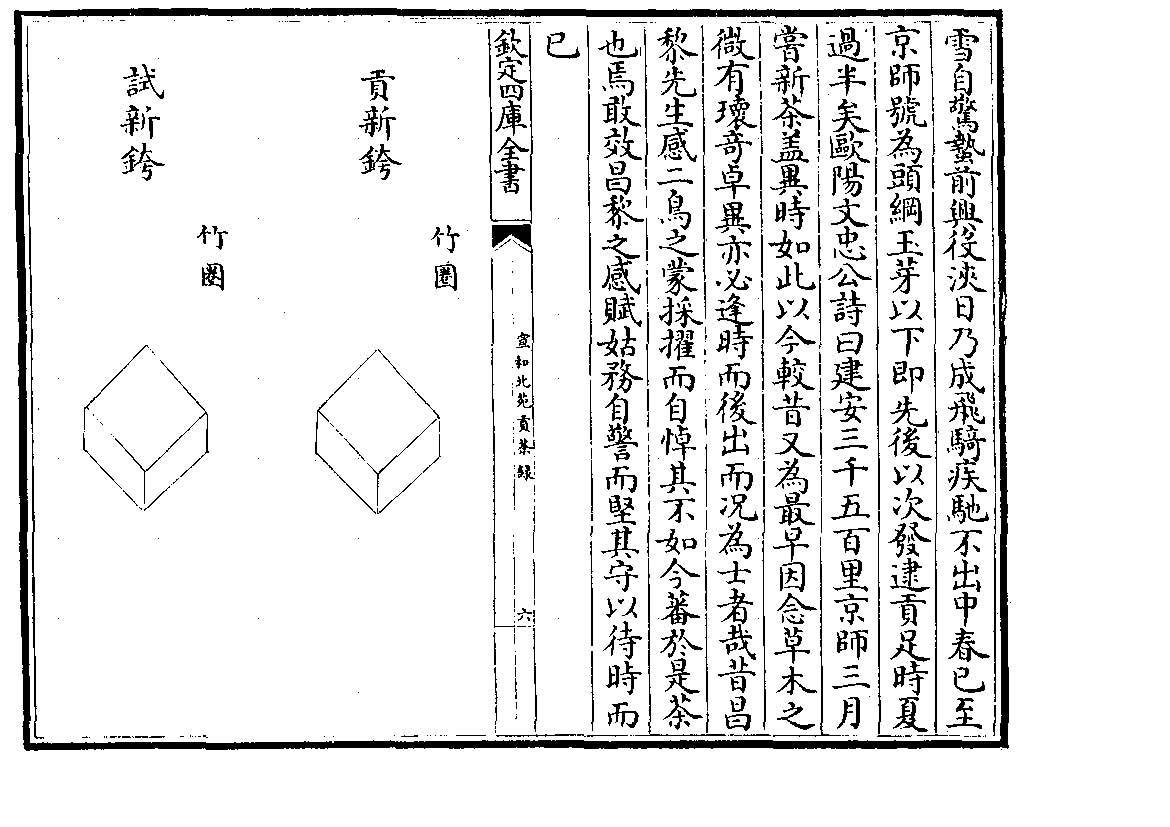 雪自驚蟄前興役浹日乃成飛騎疾馳不出中春已至
京師號為頭綱玉芽以下即先後以次發逮貢足時夏
過半矣歐陽文忠公詩曰建安三千五百里京師三月
嘗新茶盖異時如此以今較昔又為最早因念草木之
微有瓌竒卓異亦必逢時而後出而况為士者哉昔昌
黎先生感二鳥之蒙採擢而自悼其不如今蕃於是茶
也焉敢效昌黎之感賦姑務自警而堅其守以待時而
已
欽定四庫全書
宣和北苑貢茶錄
六
貢新銙
竹圏
試新銙
竹圏